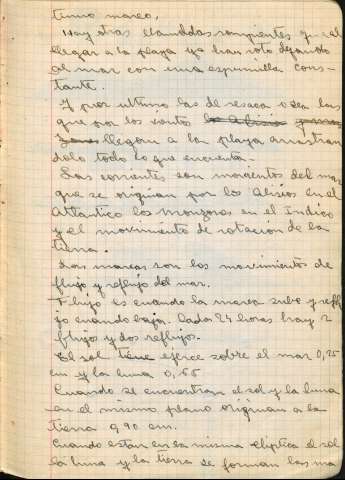 tumo mareo,
Hay otras llamadas rompientes q al
llegar a la playa ya han roto dejando
al mar con una espumilla cons-
tante.
Y por ultimo las de resaca o sea las
que por los vientos
llegan a la playa arrastran
dolo todo lo que encuentra.
Las corrientes son movimentos del mar
que se originan por los Alisios en el
Atlantico los Monzones en el Indico
y el movimiento de rotación de la
tierra.
Las mareas son los movimientos de
flujo y reflujo del mar.
Flujo es cuando la marea sube y reflu
jo cuando baja. Cada 24 horas hay 2
flujos y dos reflujos.
El sol tiene ejerce sobre el mar 0,25
cm y la luna 0,65
Cuando se encuentran el sol y la luna
en el mismo plano originan a la
tierra 0,90 cm.
Cuando están en la misma eliptica el sol
la luna y la tierra se forman las ma